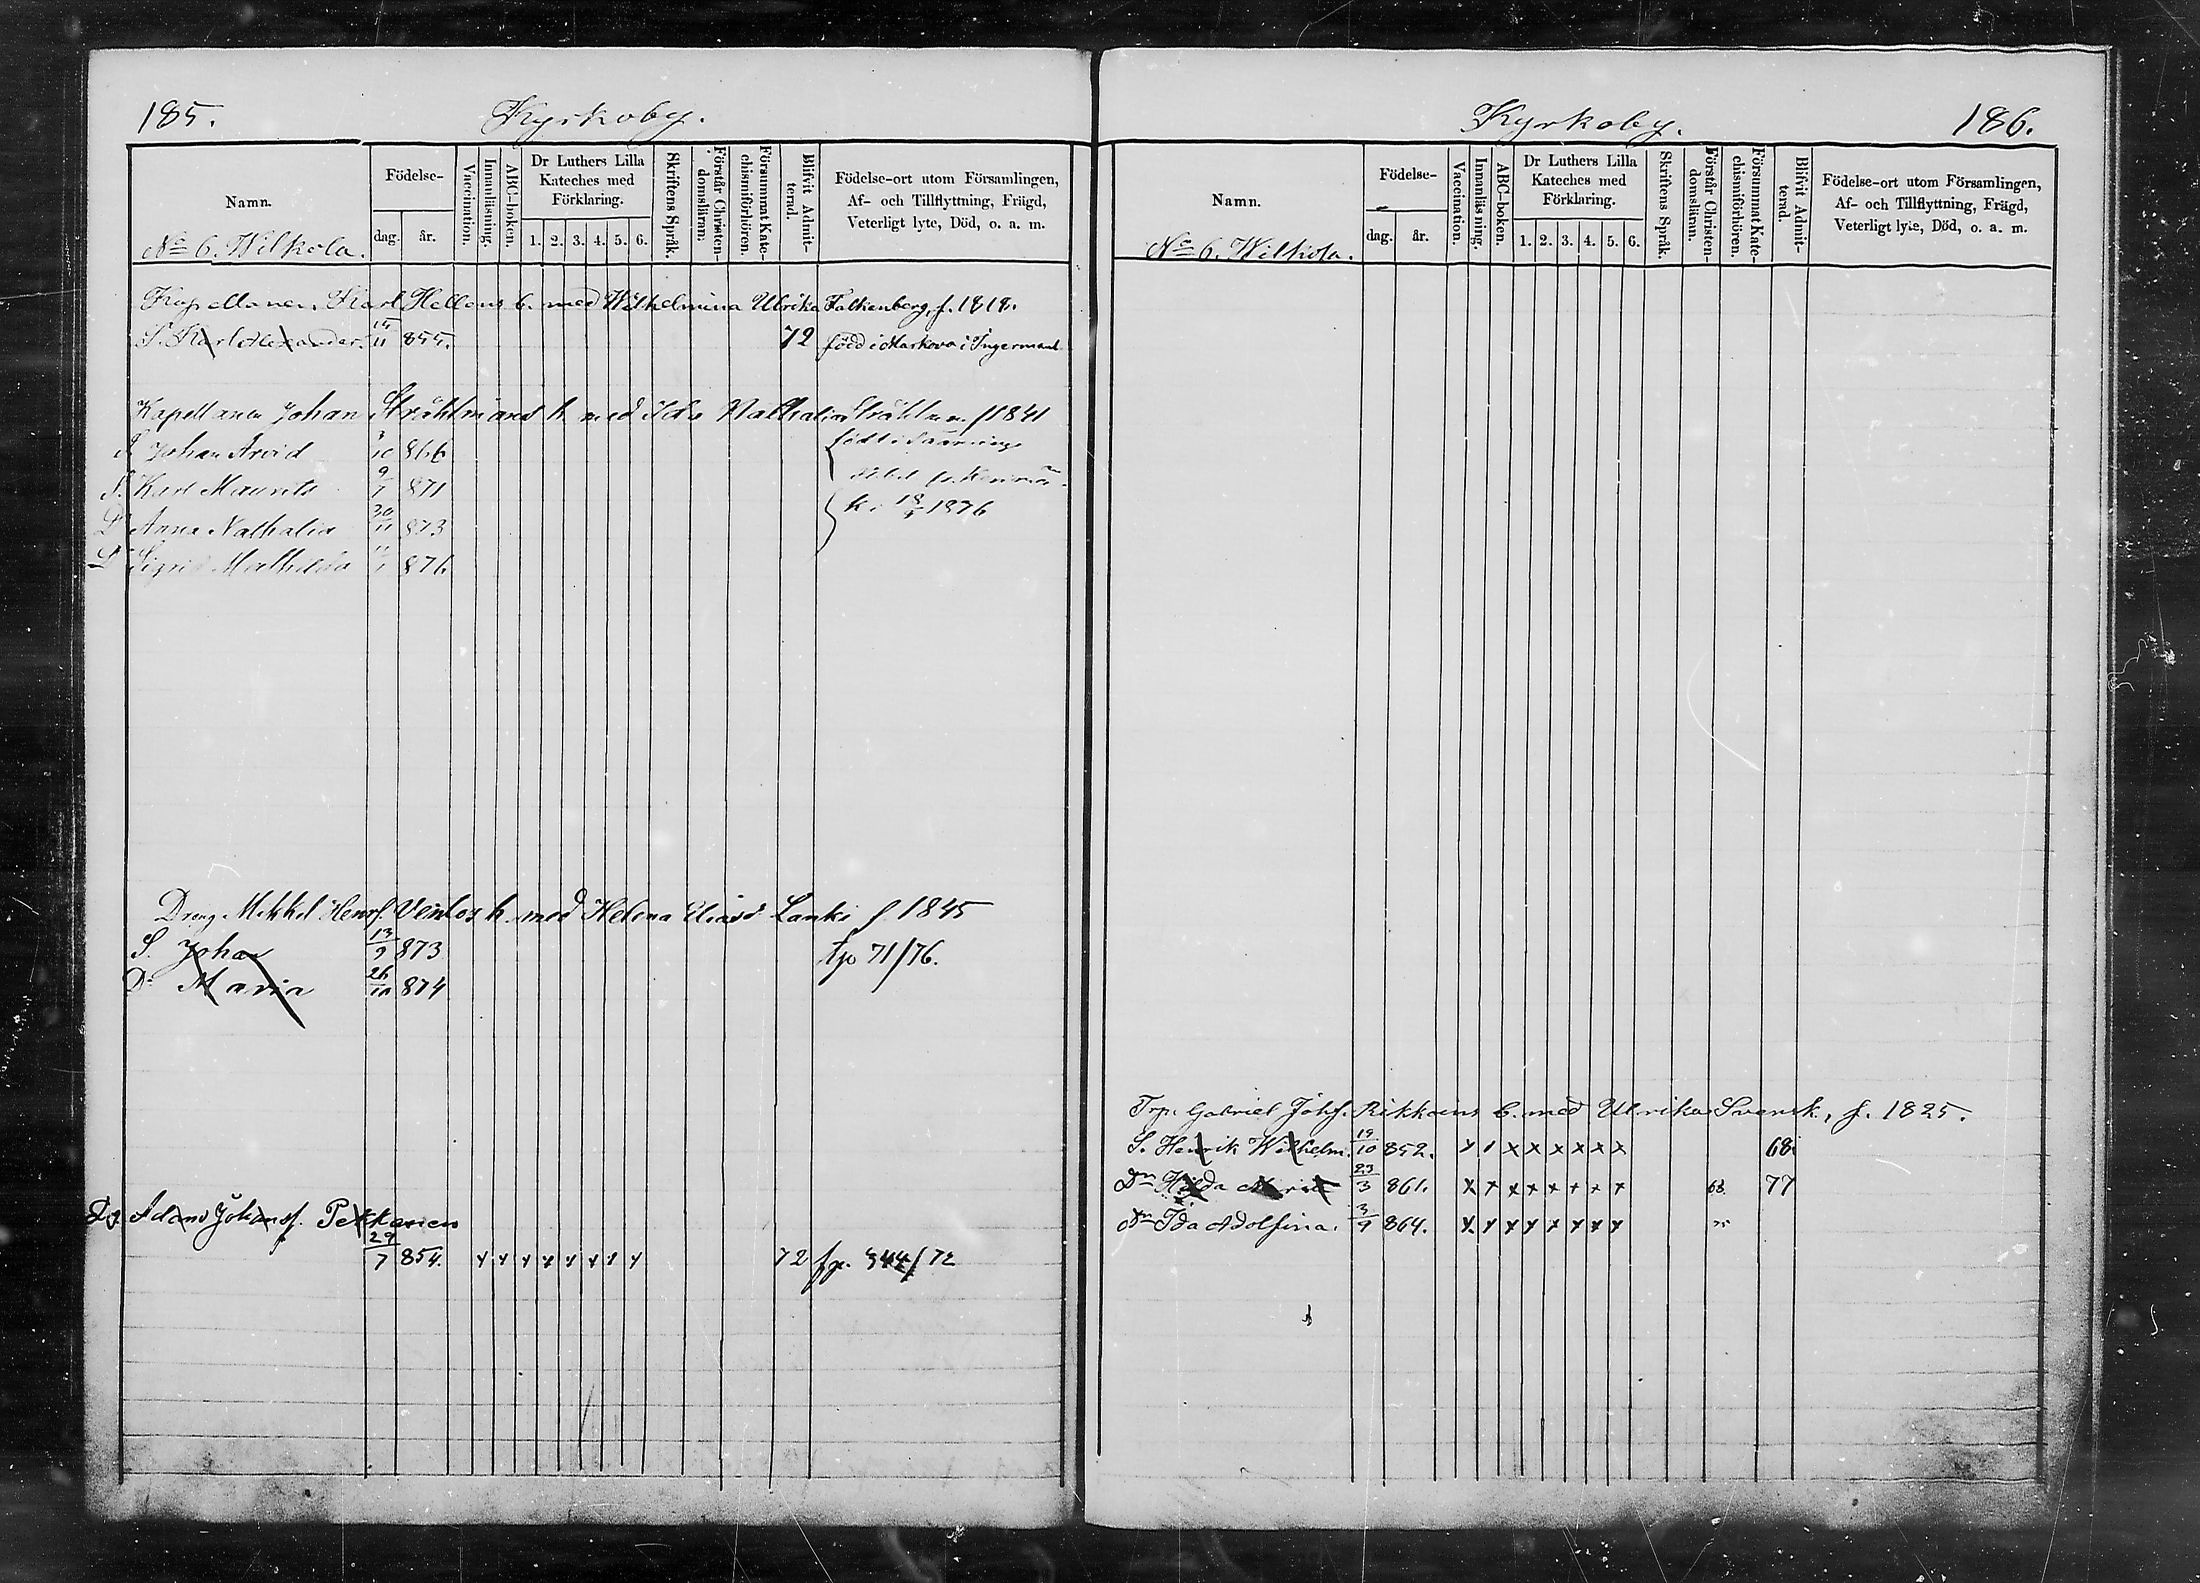 185.
Kyrkoby.
Namn.
Födelse-
dag. år.
Vaccination.
Innanläsning.
ABC-boken.
Dr Luthers Lilla
Kateches med
Förklaring.
1. 2. 3. 4. 5. 6.
Skriftens Språk.
Förstår Christen-
domsläran:
Försummat Kate-
chismiförhören.
Blifvit Admit-
terad.
Födelse-ort utom Församlingen,
Af- och Tillflyttning, Frägd,
Veterligt lyte, Död, o. a. m.
No 6. Wilkola.
Kapellanen, Karl Hellens b. med Wilhelmina Ulrika Falkenberg, f. 1818.
S. Karl Alexander. 11 855. 72 född i Markova i Ingermanl
Kapellanen Johan Stråhlmans h. med Ida Nathalia Stråhlman f 1841
S Johan Arvid 10 866
S. Karl Maurits 9 871
k. 1876
D Anna Nathalia 30/11 873
D Sigrid Mathilda 876
Dräng Mikkel Henrs. Ventos h. med Helena Eliasd Lanki f 1845
S. Johan 13/9 873 tp 71/76.
Dr Maria 26/10 874
Dg Adam Johansf. Pekkarien
29/7 854. x x x x x x x x 72 fp. 344/72
Kyrkoby.
186.
Namn.
Födelse-
dag. år.
Vaccination.
Innanläsning.
ABC-boken.
Dr Luthers Lilla
Kateches med
Förklaring.
1. 2. 3. 4. 5. 6.
Skriftens Språk.
Förstår Christen-
domsläran.
Försummat Kate-
chismiförhören.
Blifvit Admit-
terad.
Födelse-ort utom Församlingen,
Af- och Tillflyttning, Frägd,
Veterligt lyte, Död, o. a. m.
No 6. Wilkola.
Trp. Gabriel Johs. Rikkoins b. med Ulrika Svensk, f. 1825.
S. Henrik Wilhelm. 19/10 852. x x x x x x x x 68.
Dr Hilda Maria 23/3 861. x x x x x x x x 68. 77
Dr Ida Adolfina. 3/9 864. x x x x x x x x "